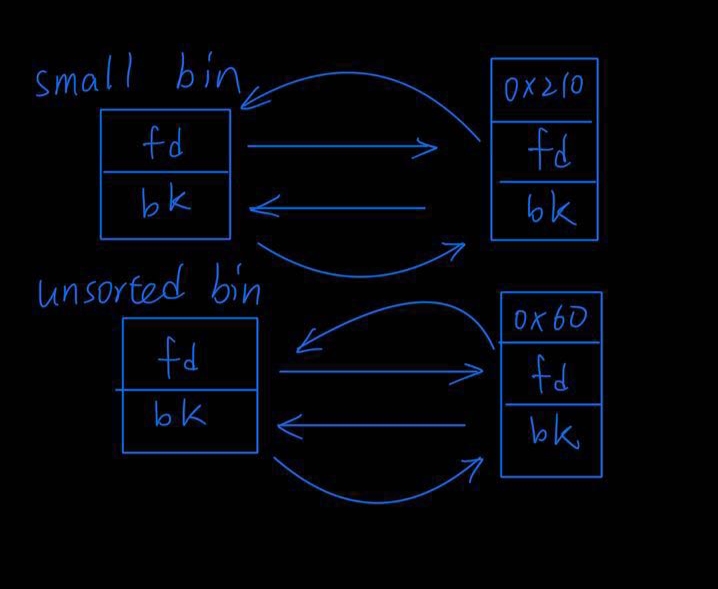 small bin
fd
bk
0x210
fd
bk
unsorted bin
fd
bk
0x60
fd
bk